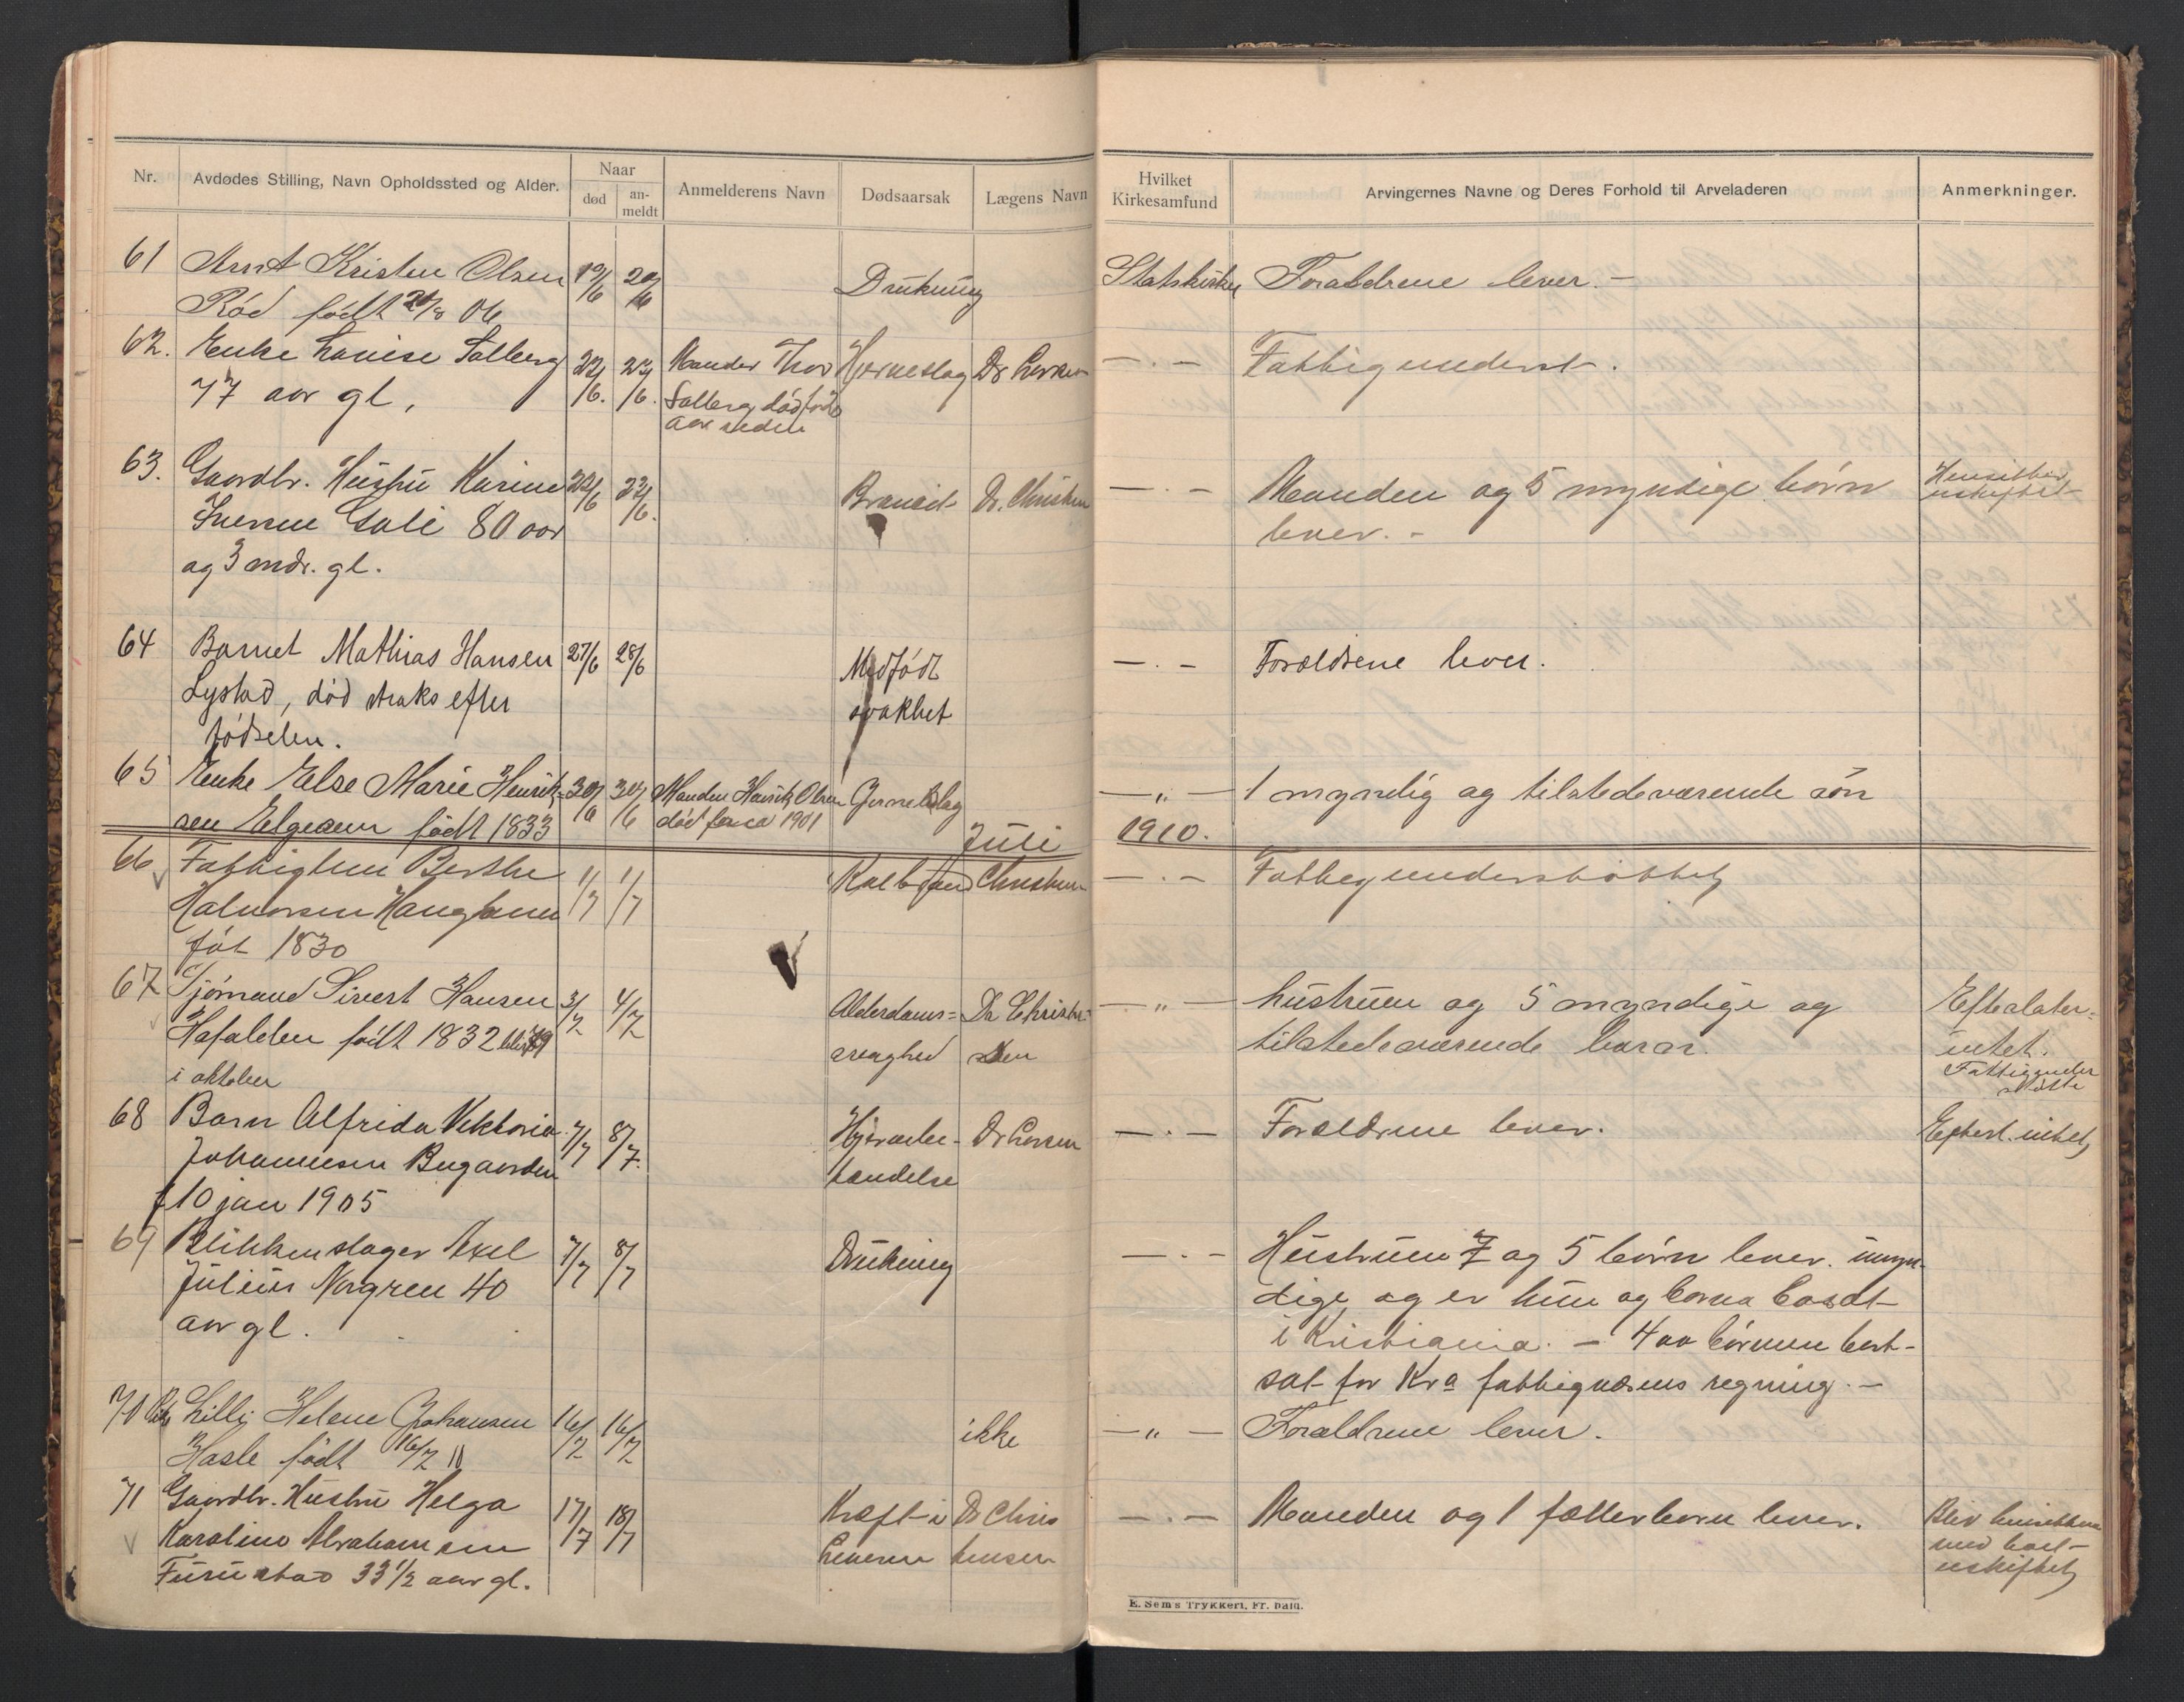 Nr.
Avdødes Stilling, Navn Opholdssted og Alder.
Naar
død
an-
meldt
Anmelderens Navn
Dødsaarsak
Lægens Navn
Hvilket
Kirkesamfund
Arvingernes Navne og Deres Forhold til Arveladeren
Anmerkninger.
61 Arnt Kristen Olsen 19/6 20/6 Drukning Statskirken Forældrene lever. –
Rød født 06
62. Enke Lovise Solberg 22/6. 23/6. Manden Thor Hjerneslag Dr Larsen — . — Fattigunderst.
77 aar gl. Solberg død
aar siden
63. Gaardbr. Hustru Karine 22/6 23/6. Dr. Christen — . — Manden og 5 myndige børn
Iversen Gali 80 aar lever. –
og 3 mdr. gl.
uskiftet
64 Barnet Mathias Hansen 27/6 28/6 Medfødt — . — Forældrene lever.
Lystad, død straks efter svakhet
fødselen.
65 Enke Else Marie Henrik= 30/6 30/6 Manden Henrik Olsen Hjerneslag — „ — 1 myndig og tilstedeværende søn
sen Elgeaen født 1833 død 1901
Juli 1910.
66 Fattiglem Berthe 1/7 1/7 Kolbrand Christensen — . — Fattigunderstøttet
Halvorsen Hauglund
født 1830
67 Sjømand Sivert Hansen 3/7 4/7 Alderdoms= Dr Christen — „ — hustruen og 5 myndige og Efterlater=
Hafalden født 1832 blir 79 svaghed sen tilstedeværende barn. intet.
i oktober
Fattigunder
støtte
68 Barn Alfrida Viktoria 7/7 8/7. Hjernebe- Dr Larsen — . — Forældrene lever. Efterl. intet
Johannesen Bugaarden tændelse
f 10 jan 1905
69 Blikkenslager Axel 7/7 8/7 Drukning — . — Hustruen og 5 børn lever. umyn-
Julius Norgren 40 dige og er hun og borna bosat
aar gl. i Kristiania. – 4 av børnene bort-
sat for Kra fattigvæsens regning. –
70 Lilly Helene Johansen 16/7 16/7 ikke — „ — Forældrene lever.
Hasle født 16/7 10
71 Gaardbr. Hustru Helga 17/7 18/7 Kræft i Dr Chris — . — Manden og 1 fællesbarn lever.
Karoline Abrahamsen Leveren tensen
Furustad 33 1/2 aar gl.
med boet
uskiftet
E. Sem's Trykkeri, Fr. hald.